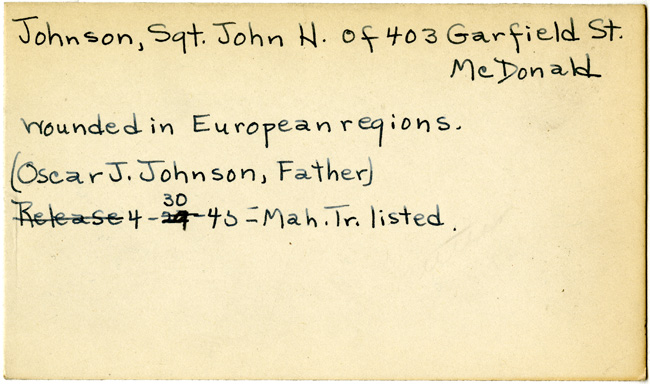 Johnson, Sgt. John H. of 403 Garfield St.
McDonald
wounded in European regions.
(Oscar J. Johnson, Father)
Release 4-30-45 = Mah. Tr. listed.